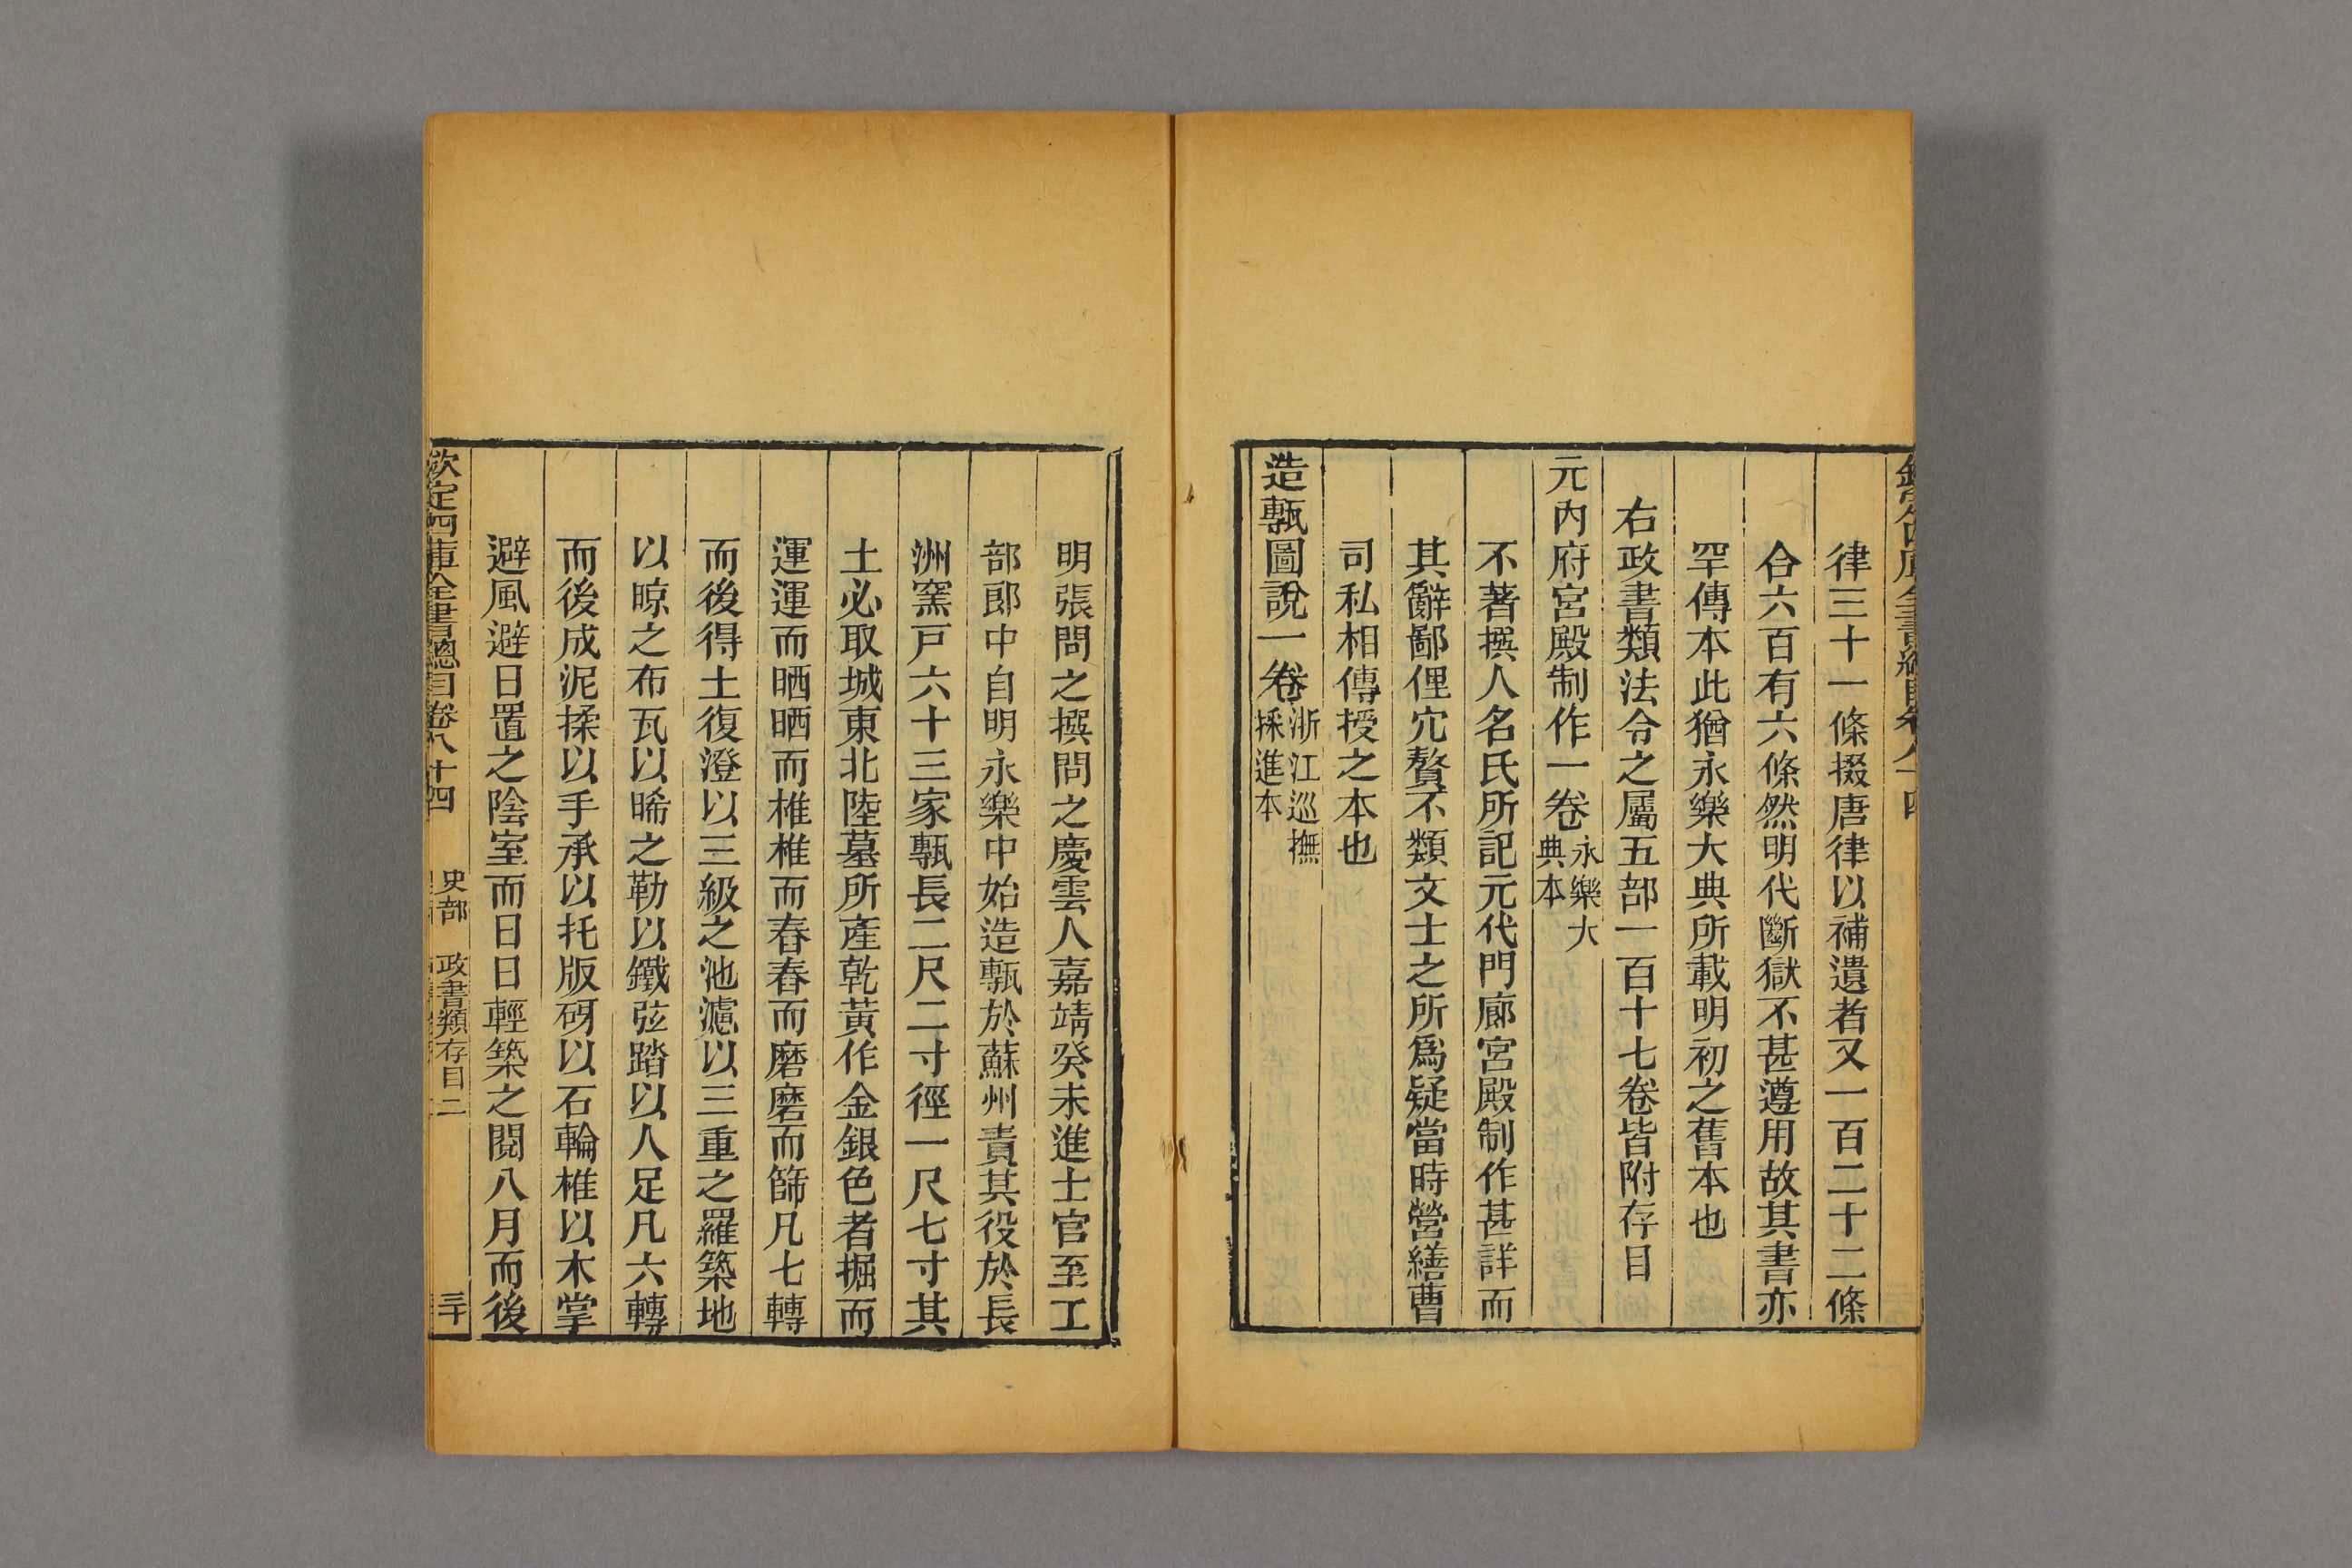 律三十一條掇唐律以補遺者又一百二十二條
合六百有六條然明代斷獄不甚遵用故其書亦
罕傳本此猶永樂大典所載明初之舊本也
右政書類法令之屬五部一百十七卷皆附存目
元內府宮殿制作一卷永樂大典本
不著撰人名氏所記元代門廊宮殿制作甚詳而
其辭鄙俚冗贅不類文士之所爲疑當時營繕曹
司私相傳授之本也
造甎圖說一卷浙江巡撫採進本
明張問之撰問之慶雲人嘉靖癸未進士官至工
部郎中自明永樂中始造甎於蘇州責其役於長
洲窯戸六十三家甎長二尺二寸徑一尺七寸其
土必取城東北陸墓所產乾黃作金銀色者掘而
運運而晒晒而椎椎而舂舂而磨磨而篩凡七轉
而後得土復澄以三級之池濾以三重之羅築地
以晾之布瓦以晞之勒以鐵弦踏以人足凡六轉
而後成泥揉以手承以托版砑以石輪椎以木掌
避風避日置之陰室而日日輕築之閱八月而後
欽定四庫全書總目卷八十四 史部 政書類存目二 三十